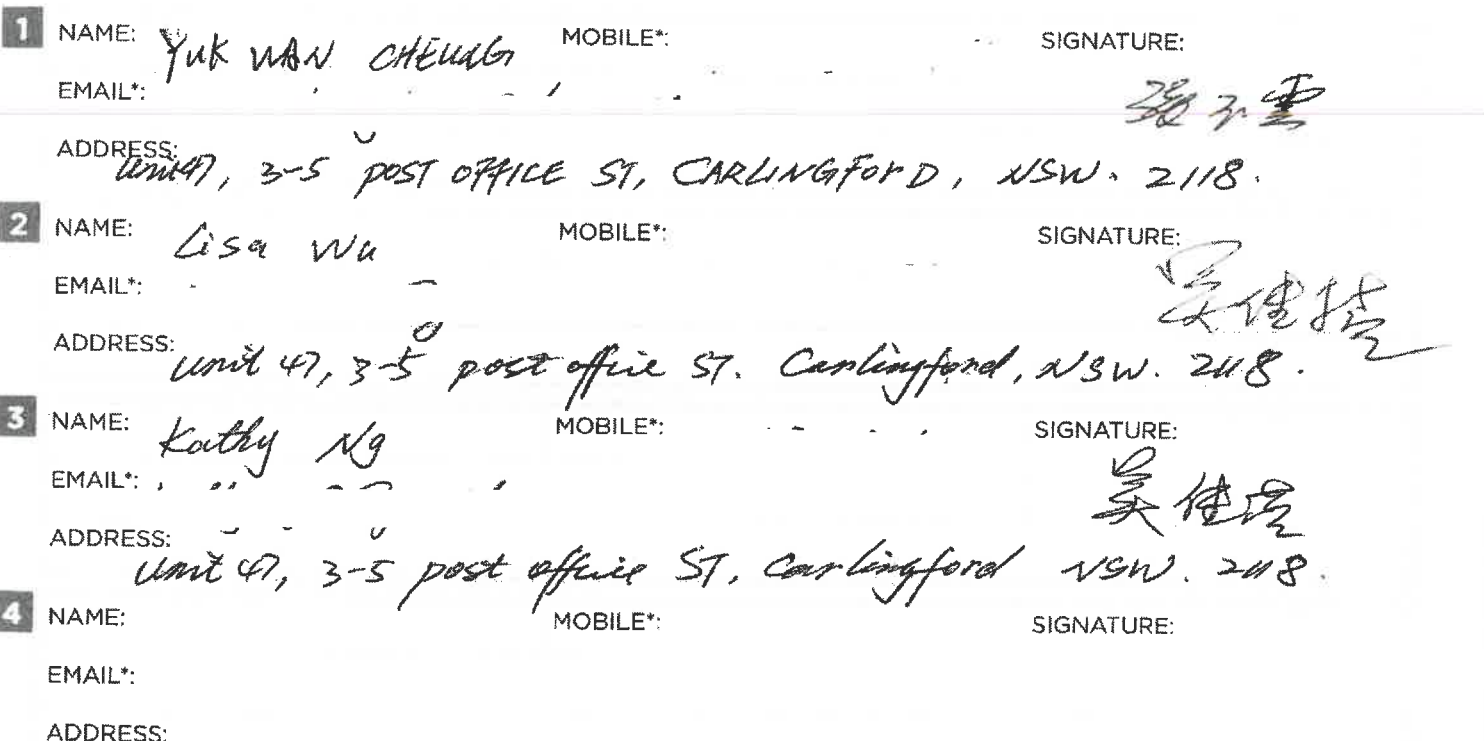 1 NAME: YUK WAN CHEUNG MOBILE*: SIGNATURE:
EMAIL*:
ADDRESS:
Unit 47, 3-5 POST OFFICE ST, CARLINGFORD, NSW. 2118.
2 NAME: Lisa Wu MOBILE*: SIGNATURE:
EMAIL*: 吴佳
ADDRESS:
Unit 47, 3-5 post office ST. Carlingford, NSW. 2118.
3 NAME: Kathy Ng MOBILE*: SIGNATURE:
EMAIL*: 吴佳
ADDRESS:
Unit 47, 3-5 post office ST, Carlingford NSW. 2118.
4 NAME: MOBILE*: SIGNATURE:
EMAIL*:
ADDRESS: